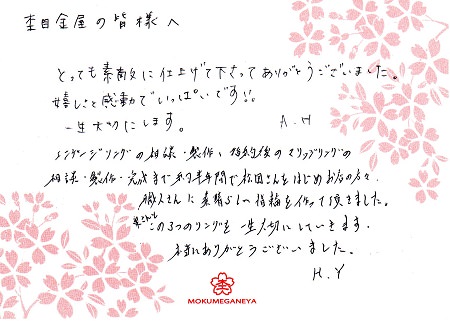 杢目金屋の皆様へ
とっても素敵に仕上げて下さってありがとうございました。
嬉しさと感動でいっぱいです!!
一生大切にします。
A.H
エンゲージリングの相談・製作、婚約後のマリッジリングの
相談・製作・完成まで約半年間で松田さんをはじめお店の方々、
職人さんに素晴らしい指輪を作って頂きました。
この3つのリングを一生大切にしていきます。
本当にありがとうございました。
H.Y
MOKUMEGANEYA